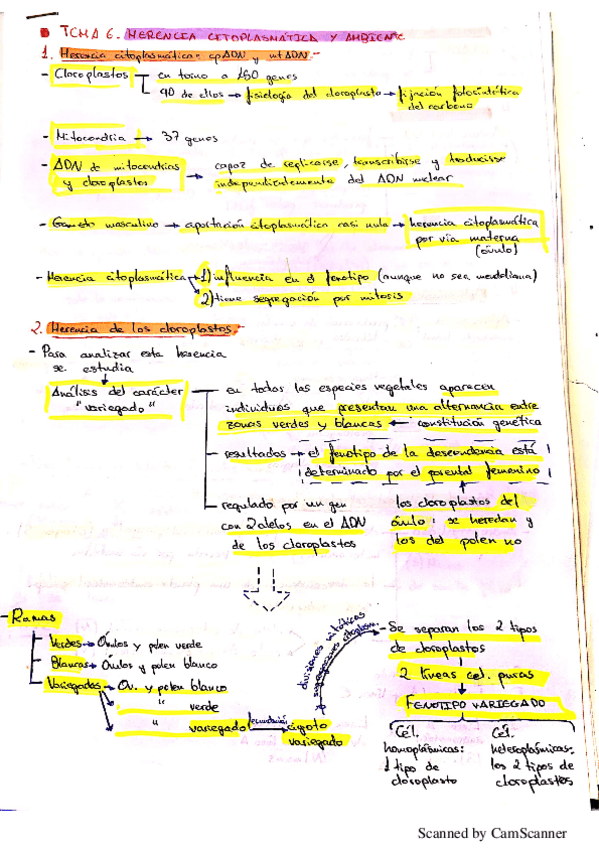 TEMA 6. HERENCIA CITOPLASMÁTICA Y AMBIENTE
1. Herencia citoplasmática: cpADN y mtADN.-
- Cloroplastos
en torno a 150 genes
90 de ellos → fisiología del cloroplasto → fijación fotosintética
del carbono
- Mitocondria → 37 genes
- ADN de mitocondrias
y cloroplastos
→ capaz de replicarse, transcribirse y traducirse
independientemente del ADN nuclear
- Gameto masculino → aportación citoplasmática casi nula → herencia citoplasmática
por vía materna
(óvulo)
- Herencia citoplasmática → 1) influencia en el fenotipo (aunque no sea mendeliana)
2) tiene segregación por mitosis
2. Herencia de los cloroplastos.-
- Para analizar esta herencia
se estudia
Análisis del carácter
"variegado"
en todas las especies vegetales aparecen
individuos que presentan una alternancia entre
zonas verdes y blancas ← constitución genética
resultados → el fenotipo de la descendencia está
determinado por el parental femenino
regulado por un gen
con 2 alelos en el ADN
de los cloroplastos
los cloroplastos del
óvulo: se heredan y
los del polen no
- Ramas
Verdes → Óvulos y polen verde
Blancas → Óvulos y polen blanco
Variegadas → Ov. y polen blanco
" verde
" variegado
fecundación
cigoto
variegado
divisiones mitóticas
y segregaciones citoplasm.
- Se separan los 2 tipos
de cloroplastos
2 líneas cel. puras
FENOTIPO VARIEGADO
Cél.
homoplásmicas:
1 tipo de
cloroplasto
Cél.
heteroplásmicas:
los 2 tipos de
cloroplastos
Scanned by CamScanner